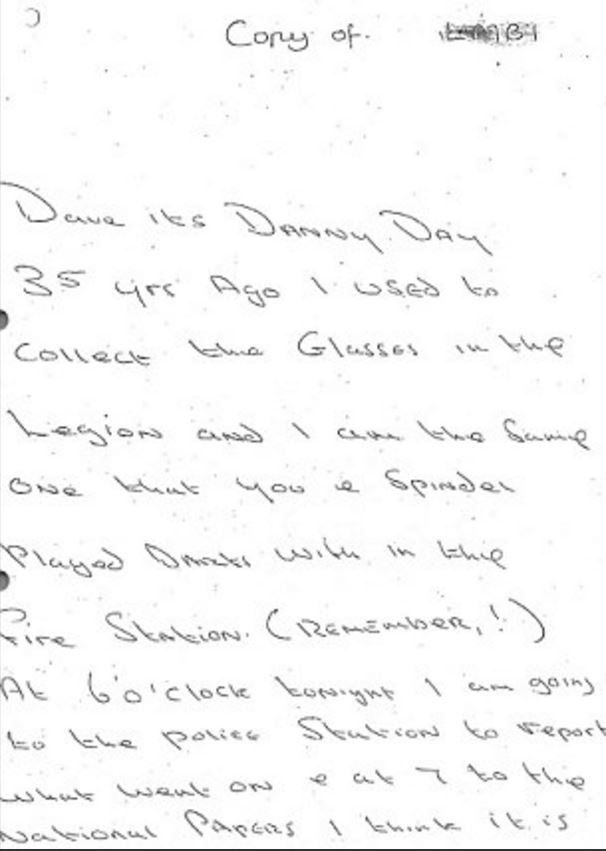 Copy of.
Dave its DANNY DAY
35 yrs Ago I used to
Collect the Glasses in the
Legion and I am the Same
One that you & Spinder
Played Darts with in the
Fire Station. (REMEMBER,!)
At 6 o'clock tonight I am going
to the police Station to report
what went on & at 7 to the
National Papers I think it is